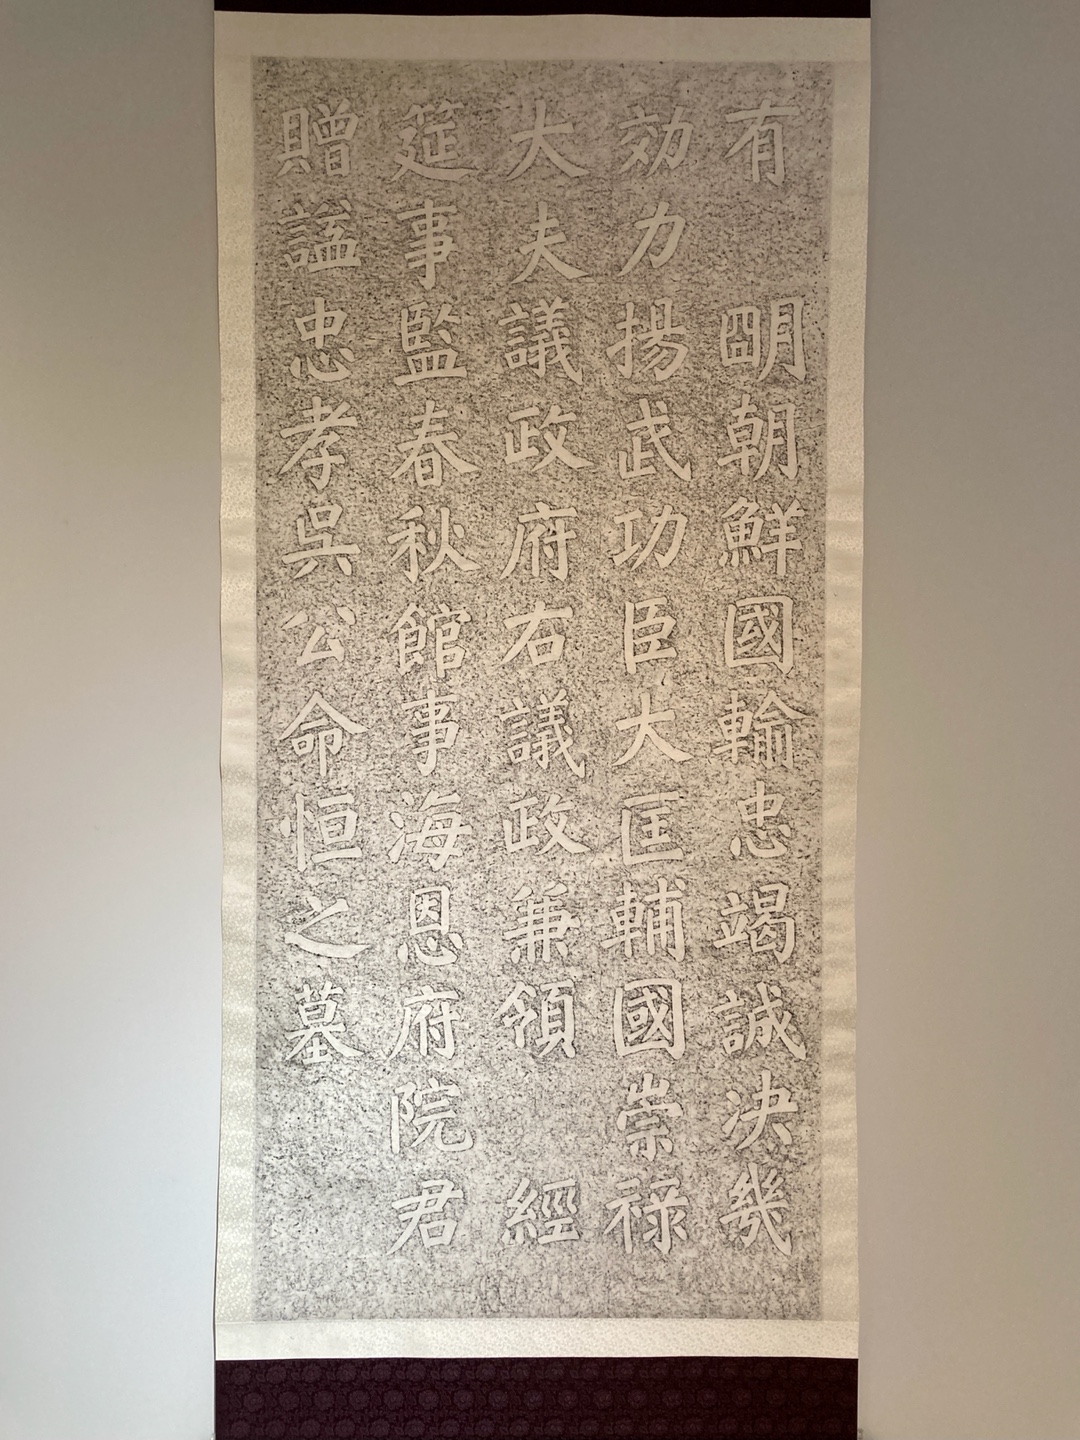 有 明朝鮮國輸忠竭誠決幾
効力揚武功臣大匡輔國崇祿
大夫議政府右議政兼領 經
筵事監春秋館事海恩府院君
贈謚忠孝吳公命恒之墓